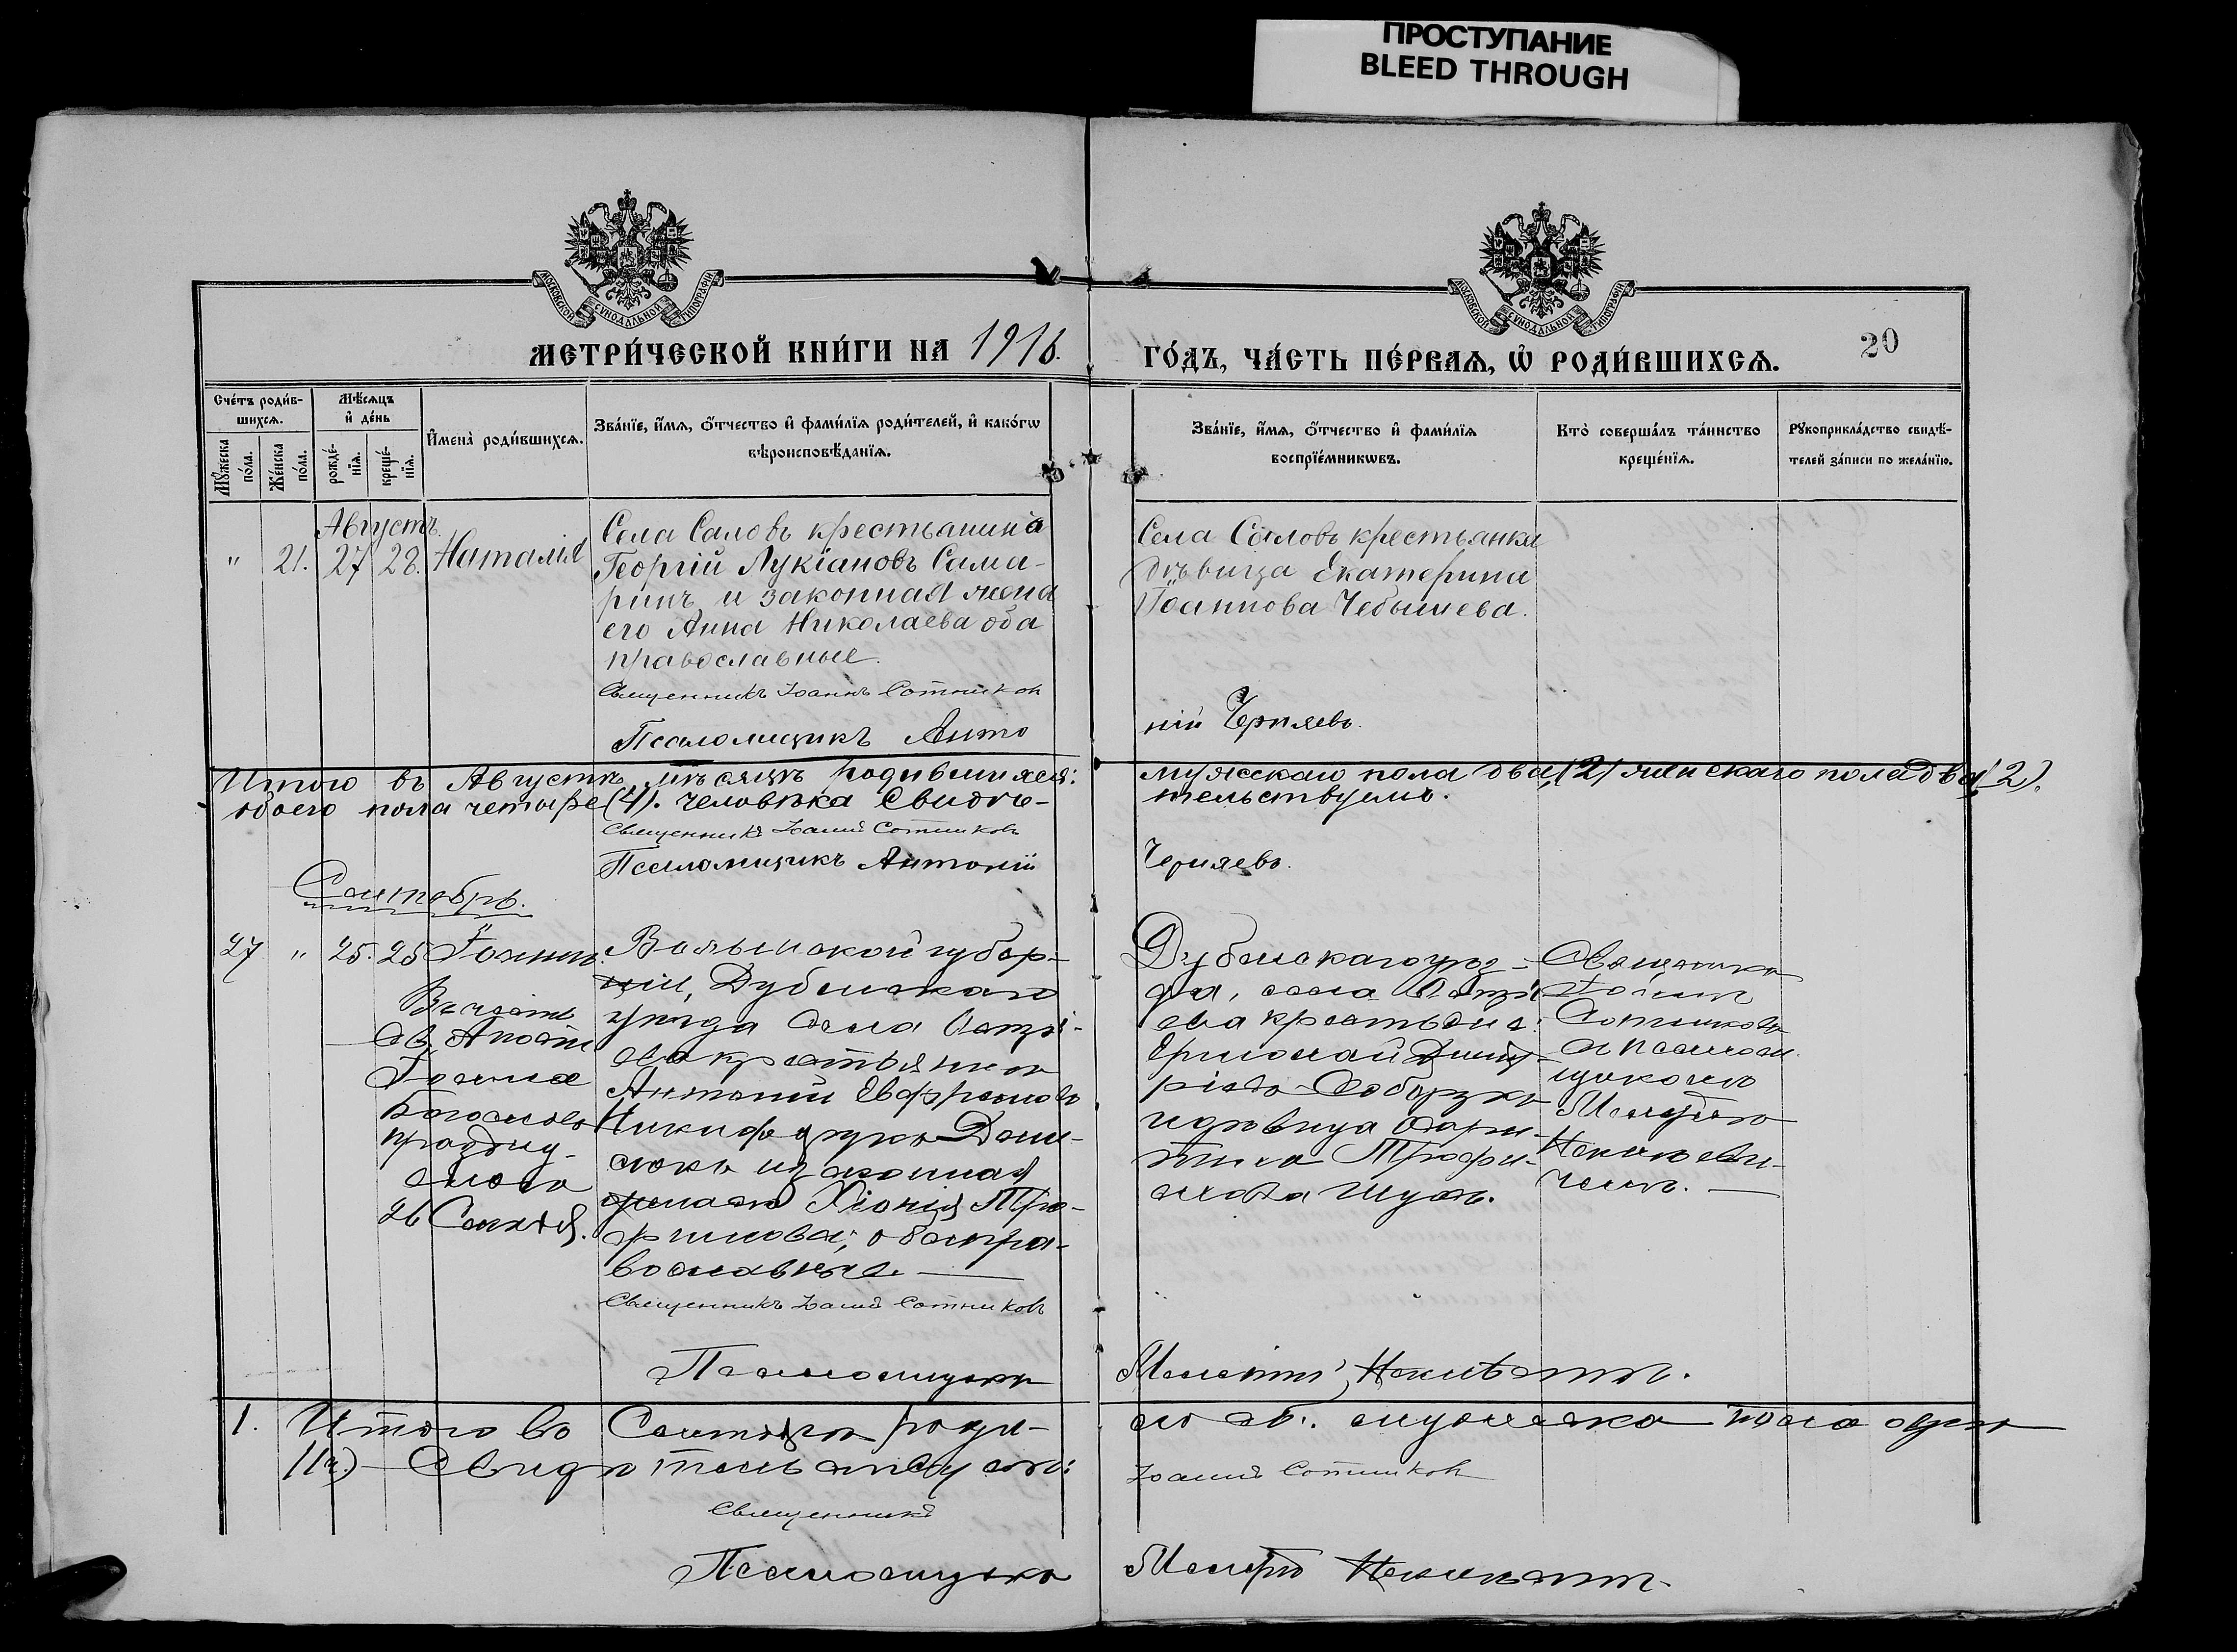 ПРОСТУПАНИЕ
BLEED THROUGH
МОСКОВСКОЙ СѴНОДАЛЬНОЙ ТИПОГРАФІИ
МОСКОВСКОЙ СѴНОДАЛЬНОЙ ТИПОГРАФІИ
МЕТРИ́ЧЕСКОЙ КНИ́ГИ НА 1916.
ГО́ДЪ, ЧА́СТЬ ПЕ́РВАѦ, Ѡ҆ РОДИ́ВШИХСѦ.
20
Сче́тъ роди́в-
шихсѧ.
Мꙋ́жеска
по́ла.
Же́нска
по́ла.
Мѣ́сѧцъ
и҆ де́нь
рожде́-
нїѧ.
креще́-
нїѧ.
И҆мена̀ роди́вшихсѧ.
Зва́нїе, и҆́мѧ, ѻ҆́тчество и҆ фами́лїѧ роди́телей, и҆ како́гѡ
вѣроисповѣ́данїѧ.
Зва́нїе, и҆́мѧ, ѻ҆́тчество и҆ фами́лїѧ
воспрїе́мникѡвъ.
Кто̀ соверша́лъ та́инство
креще́нїѧ.
Рꙋкоприкла́дство свидѣ́-
телей за́писи по жела́нїю.
Августъ.
" 21. 27 28. Наталія
Села Саловъ крестьянинъ
Георгій Лукіановъ Сама-
ринъ и законная жена
его Анна Николаева оба
православные.
Священникъ Іоаннъ Сотников
Псаломщикъ Анто
Села Саловъ крестьянка
дѣвица Екатерина
Іоаннова Чебышева.
ній Черняевъ.
Итого въ Августѣ мѣсяцѣ родившихся: мужскаго пола два (2) женскаго пола два (2).
обоего пола четыре (4). человѣка Свидѣ-
тельствуемъ.
Священникъ Іоаннъ Сотниковъ
Псаломщикъ Антоній
Черняевъ.
Сентябрь.
27 " 25. 25 Іоаннъ.
В честь
Св. Апост.
Іоанна
Богослова
праздну-
емаго
26 Сентяб.
Волынской губер-
ніи, Дубенскаго
уѣзда села
крестьянинъ
Антоній Евфремовъ
Никифорукъ Дани-
люкъ и законная
жена его Хіонія Тро-
фимова, оба пра-
вославные.
Священникъ Іоаннъ Сотниковъ
Псаломщикъ
Дубенскаго уѣз-
да, села
ева крестьяне:
Ермолай Дмит-
ріевъ
и дѣвица
Трофи-
мова Шуль.
Мелетій
Священникъ
Іоаннъ
Сотниковъ
и псалом-
щикомъ
1. Итого въ Сентябрѣ роди-
лось: мужеска пола одинъ
1(4.) Свидѣтельствуемъ:
Священникъ
Іоаннъ Сотников
Псаломщикъ